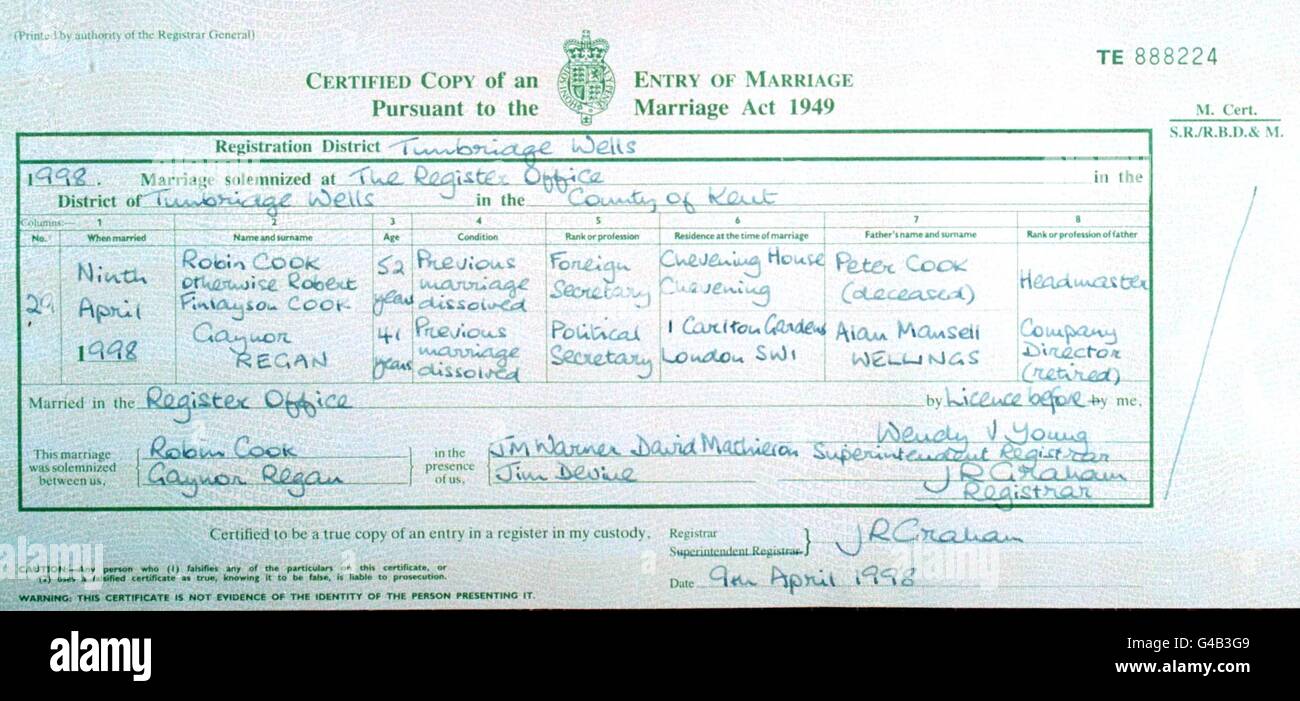 (Printed by authority of the Registrar General)
TE 888224
CERTIFIED COPY of an ENTRY OF MARRIAGE
Pursuant to the Marriage Act 1949
M. Cert.
S.R./R.B.D.& M.
Registration District Tunbridge Wells
1998. Marriage solemnized at The Register Office in the
District of Tunbridge Wells in the County of Kent
Columns:— 1 2 3 4 5 6 7 8
No. When married Name and surname Age Condition Rank or profession Residence at the time of marriage Father's name and surname Rank or profession of father
29 Ninth April 1998
Robin COOK otherwise Robert Finlayson COOK 52 years Previous marriage dissolved Foreign Secretary Chevening House Chevening Peter COOK (deceased) Headmaster
Gaynor REGAN 41 years Previous marriage dissolved Political Secretary 1 Carlton Gardens London SW1 Alan Mansell WELLINGS Company Director (retired)
Married in the Register Office by Licence before by me,
This marriage was solemnized between us, Robin Cook Gaynor Regan
in the presence of us, JM Warner David Mathieson Jim Devine
Wendy V Young
Superintendent Registrar
J R Graham
Registrar
Certified to be a true copy of an entry in a register in my custody.
Registrar
Superintendent Registrar
J R Graham
Date 9th April 1998
CAUTION:—Any person who (1) falsifies any of the particulars on this certificate, or
(2) uses a falsified certificate as true, knowing it to be false, is liable to prosecution.
WARNING: THIS CERTIFICATE IS NOT EVIDENCE OF THE IDENTITY OF THE PERSON PRESENTING IT.
alamy
Image ID: G4B3G9
www.alamy.com